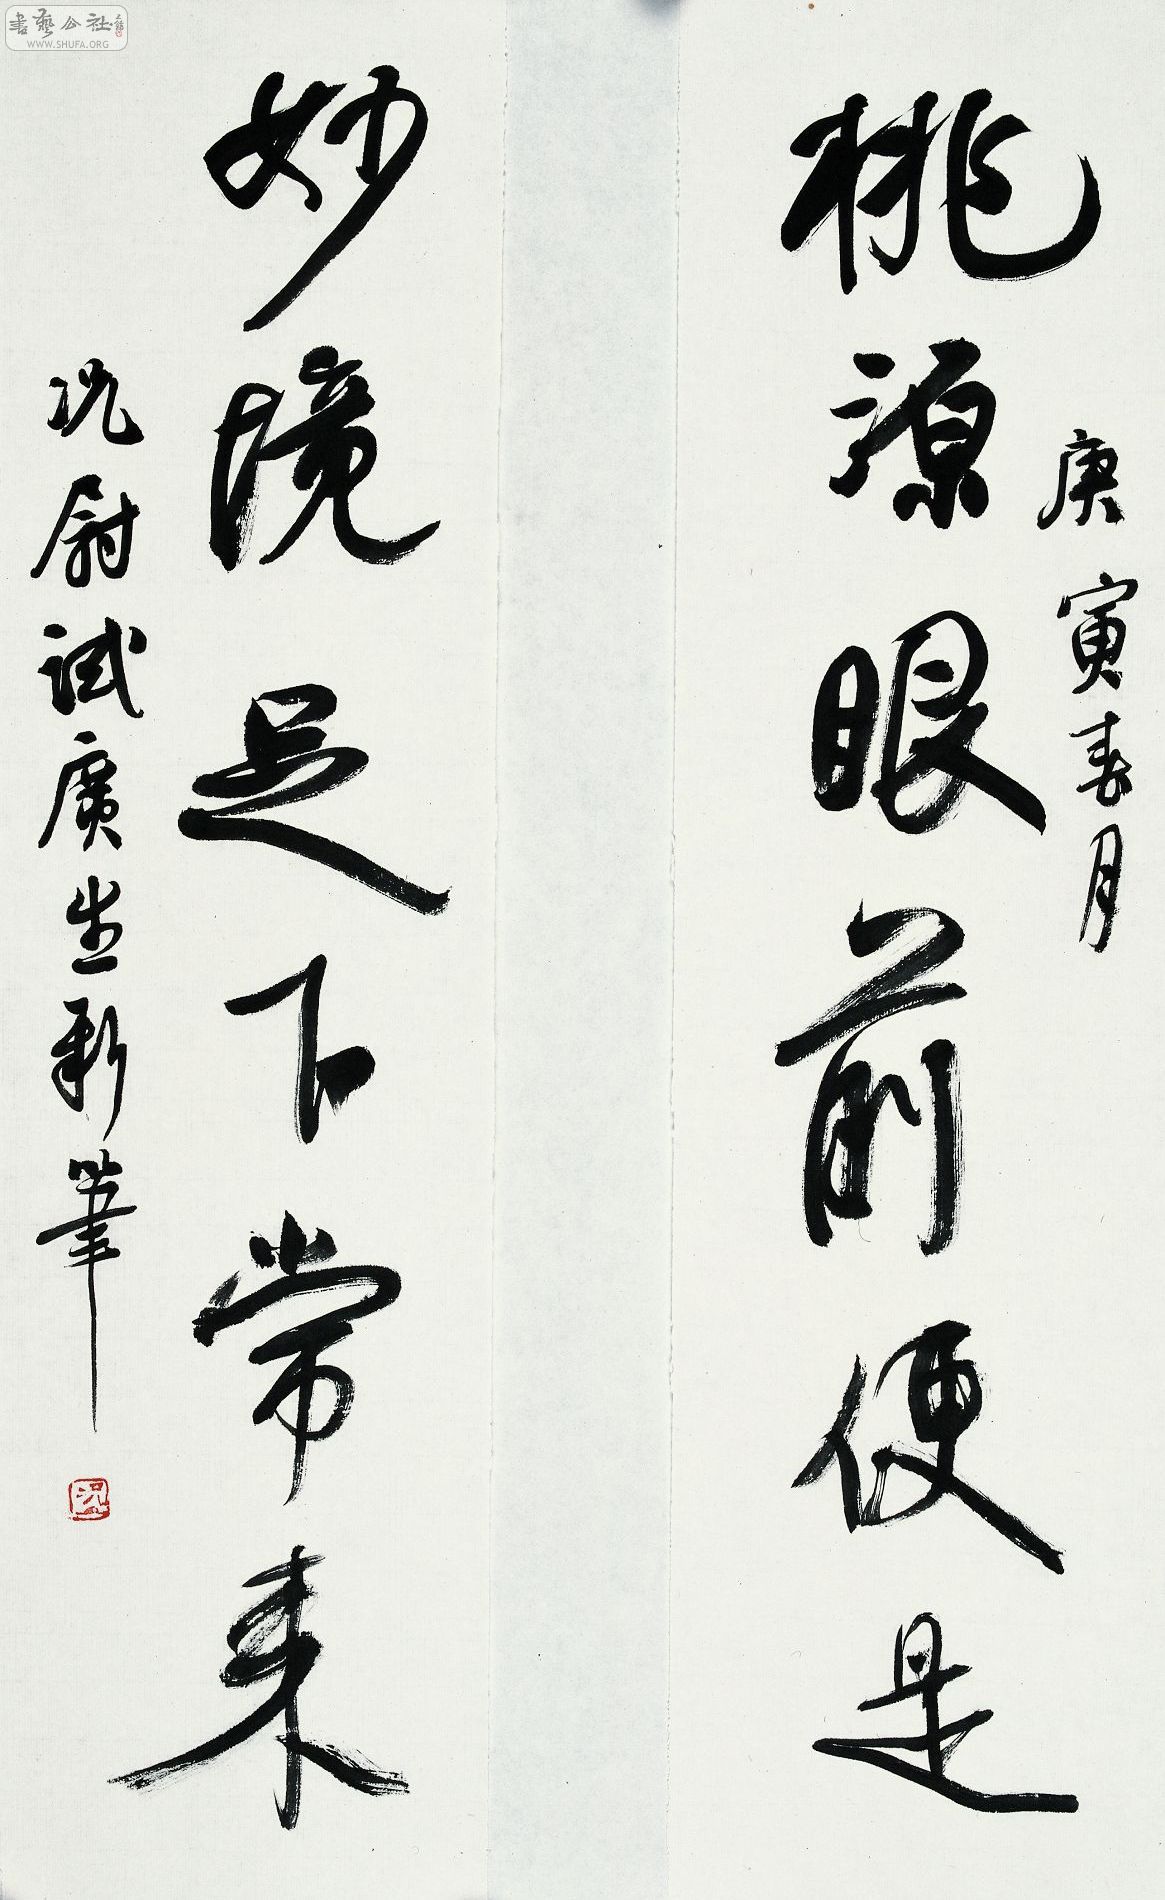 桃源眼前便是
庚寅春月
妙境足下常来
况尉試廣生新筆
况
書藝公社
WWW.SHUFA.ORG